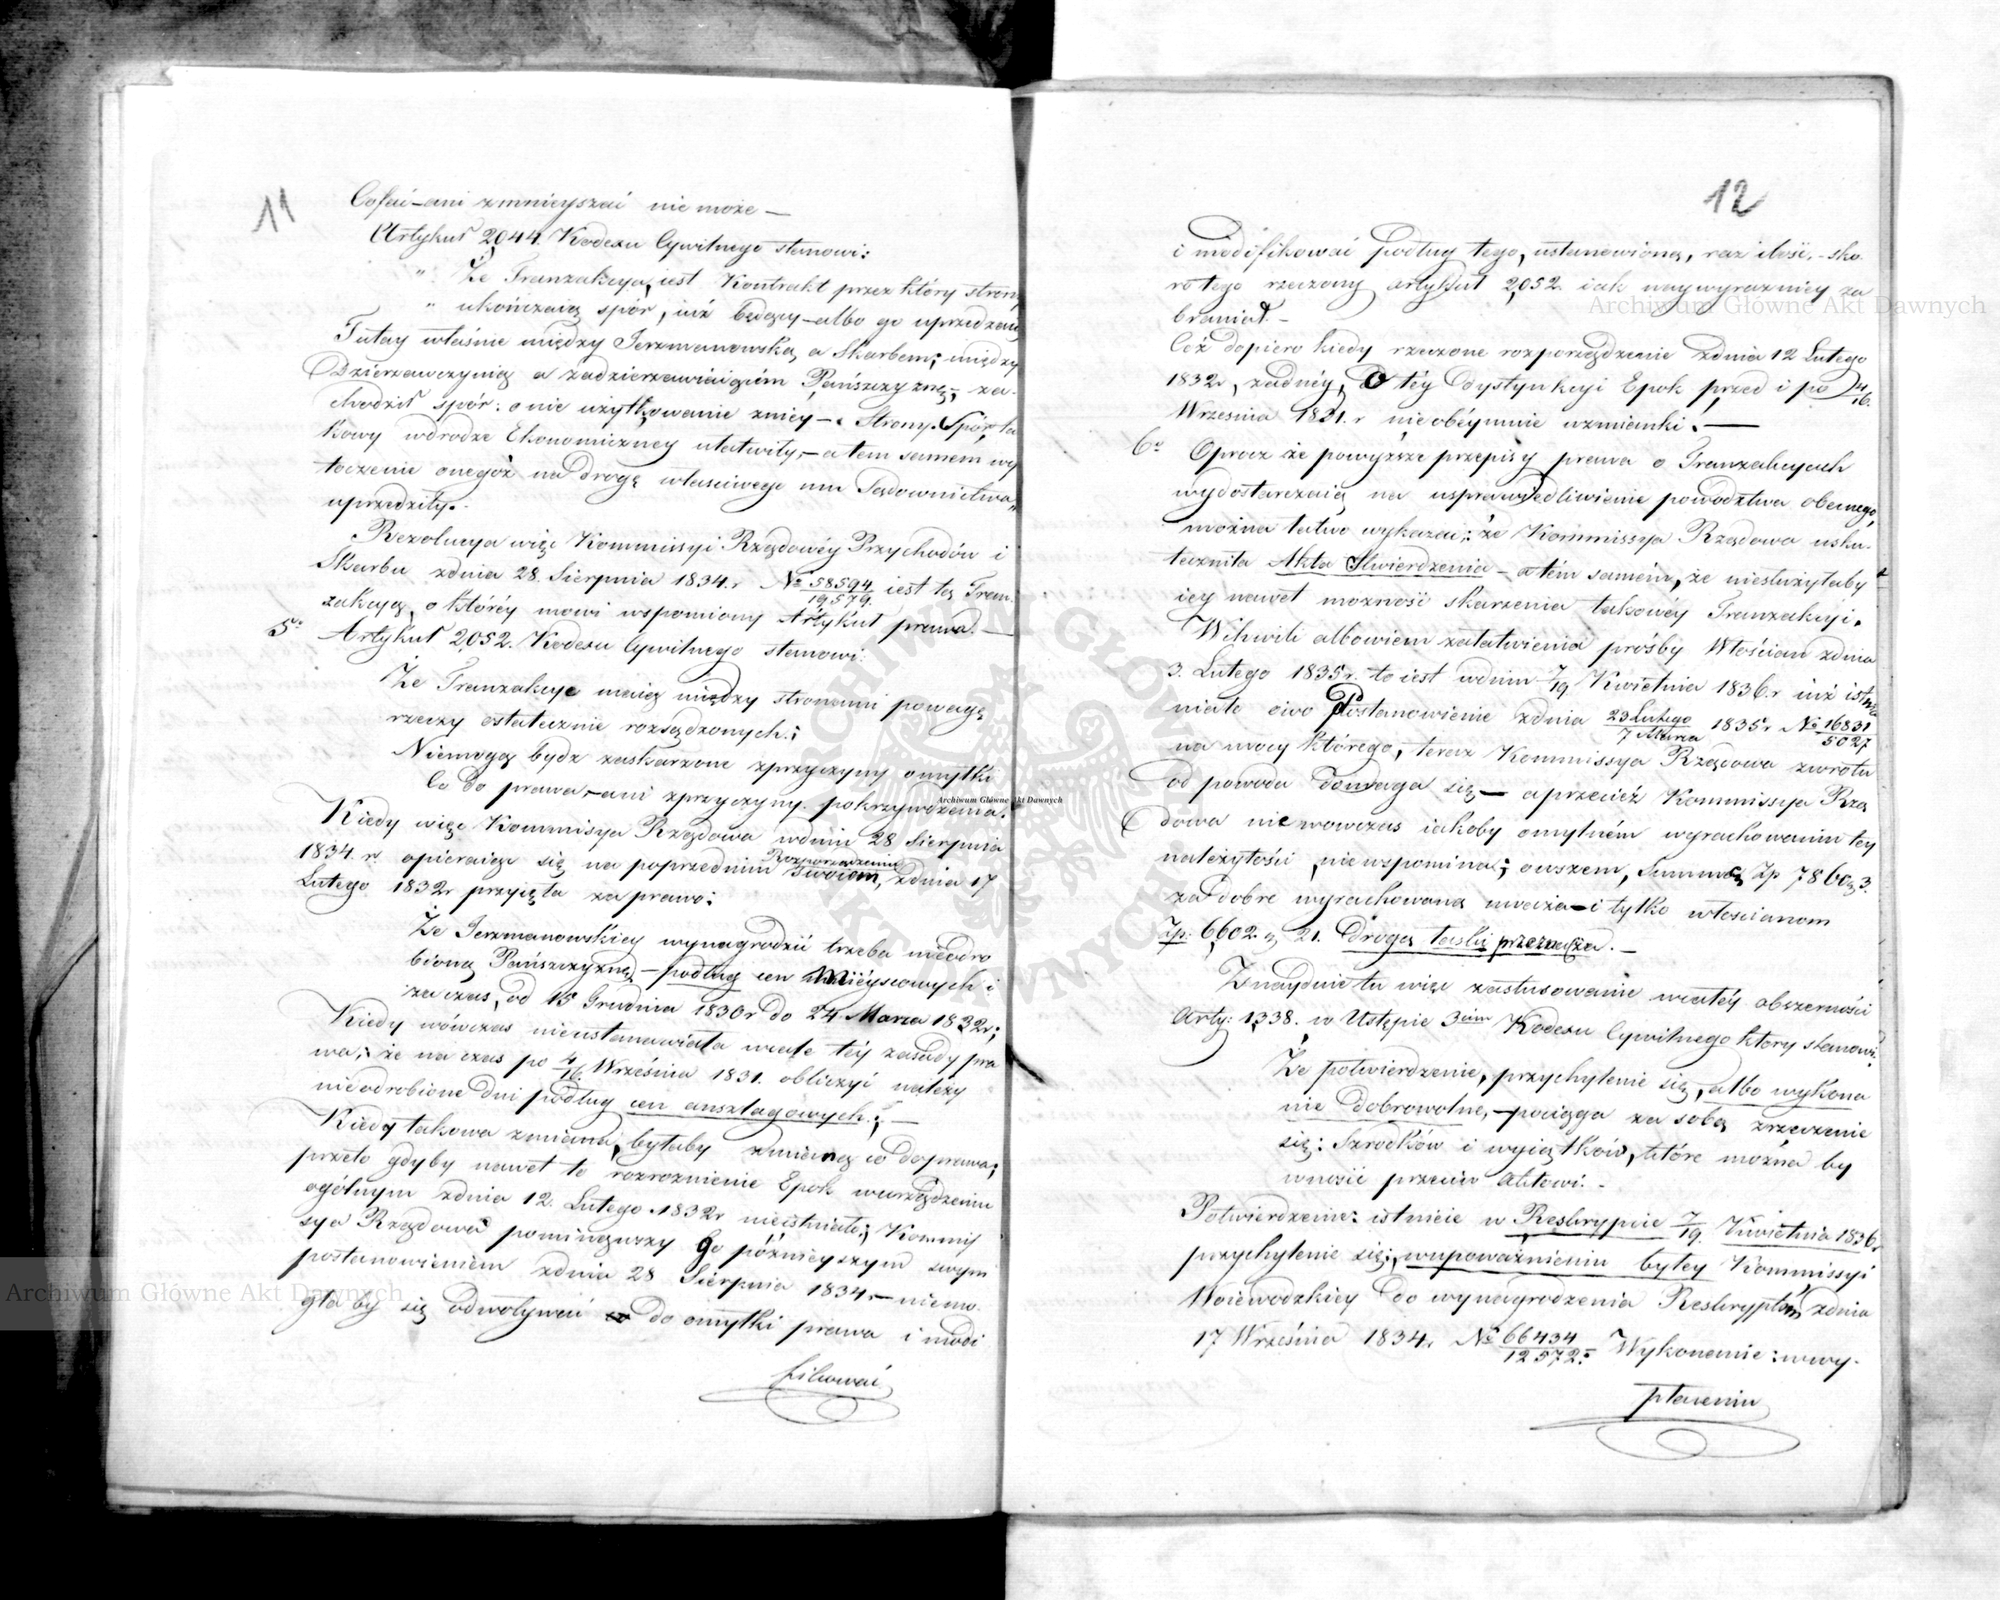 11
Cofać – ani zmnieyszać nie może –
Artykuł 2044. Kodexu Cywilnego stanowi:
" Że Tranzakcya, iest Kontrakt przez który strony
" ukończaią spór, iuż będący – albo go uprzedzaią
Tutay właśnie między Jerzmanowską a Skarbem; między
Dzierzawczynią a zadzierzawiaiącym Pańszczyznę, za-
chodził spór: o nie użytkowanie zniey – Strony Spór ta
kowy wdrodze Ekonomiczney ułatwiły, – a tem samem wy
toczenie onegoż na drogę właściwego mu Sądownictwa,
uprzedziły.
Rezolucya więc Kommissyi Rządowéy Przychodów i
Skarbu zdnia 28. Sierpnia 1834. r № 58594/19579. iest tą Tran-
zakcyą, o któréy mowi wspomiony Artykuł prawa. –
5º Artykuł 2052. Kodexu Cywilnego stanowi:
Że Tranzakcye maią między stronami powagę
rzeczy ostatecznie rozsądzonych.;
Niemogą bydz zaskarzone zprzyczyny omyłki
Co do prawa, – ani zprzyczyny pokrzywdzenia.
Kiedy więc Kommissya Rządowa wdniu 28 Sierpnia
1834. r. opieraiąc się na poprzednim Rozporządzeniu Swoiem, zdnia 17
Lutego 1832r przyięła za prawo:
Że Jerzmanowskiey wynagrodzić trzeba nieodro
bioną Pańszczyznę, – podług cen Mieyscowych i
za czas, od 15 Grudnia 1830r do 24 Marca 1832r;
Kiedy wówczas nieustanawiała wcale téy zasady pra
wa; że na czas po 4/16 Września 1831. obliczyć należy
nieodrobione dni podług cen ansztagowych.; –
Kiedy takowa zmiana, byłaby zmianą co do prawa;
przeto gdyby nawet to rozroznienie Epok wurządzeniu
ogólnym zdnia 12. Lutego 1832r nieistniało; Kommis
sya Rządowa pominąwszy Go późnieyszym swym
postanowieniem zdnia 28 Sierpnia 1834. – niemo-
gła by się odwoływać do omyłki prawa i modi
fikować
12
i modifikować podług tego, ustanowioną, raz ilość, – sko-
ro tego rzeczony artykuł 2052. iak naywyrazniey za
braniał. –
Coż dopiero kiedy rzeczone rozporządzenie zdnia 12 Lutego
1832r, żadnéy, O téy Dystynkcyi Epok przed i po 4/16.
Wrzesnia 1831. r nieobéymuie wzmianki. –
6º Oprocz że powyższe przepisy prawa o Tranzakcyach
wydostarczaią na usprawiedliwienie powodztwa obecnego,
można łatwo wykazać; że Kommissya Rządowa usku-
teczniła Akta Stwierdzenia – a tém samém, że niesłużyłaby
iéy nawet możność skarzenia takowéy Tranzakcyi.
Wchwili albowiem załatwienia prośby Włościan zdnia
3. Lutego 1835r. to iest wdniu 7/19 Kwietnia 1836.r iuż istnia
niało owo Postanowienie zdnia 23 Lutego/7 Marca 1835r № 16831/5027
na mocy którego, teraz Kommissya Rządowa zwrotu
od powoda domaga się – a przecież Kommissya Rzą
dowa niewowczas iakoby omylném wyrachowaniu tey
należytości, niewspomina; owszem, Summę Zp 7860 g 3.
za dobre wyrachowaną uważa – i tylko włoscianom
Zp: 6,602. g 21. Drogą łaski przeznacza. –
Znayduie tu więc zastosowanie wcałéy obszerności
Arty: 1338. w Ustępie 3cim Kodexu Cywilnego ktory stanowi.
Że potwierdzenie, przychylenie się, albo wykona
nie dobrowolne, – pociąga za sobą zrzeczenie
się: Szrodków i wyiątków, które można by
wnosić przeciw Aktowi. –
Potwierdzenie: istnieie w Reskrypcie 7/19. Kwietnia 1836r
przychylenie się; wupoważnieniu byłey Kommissyi
Woiewodzkiey do wynagrodzenia Reskryptem zdnia
17 Września 1834r № 66434/12572. Wykonanie: wwy-
płaceniu
Archiwum Główne Akt Dawnych
Archiwum Główne Akt Dawnych
Archiwum Główne Akt Dawnych
ARCHIWUM GŁÓWNE AKT DAWNYCH